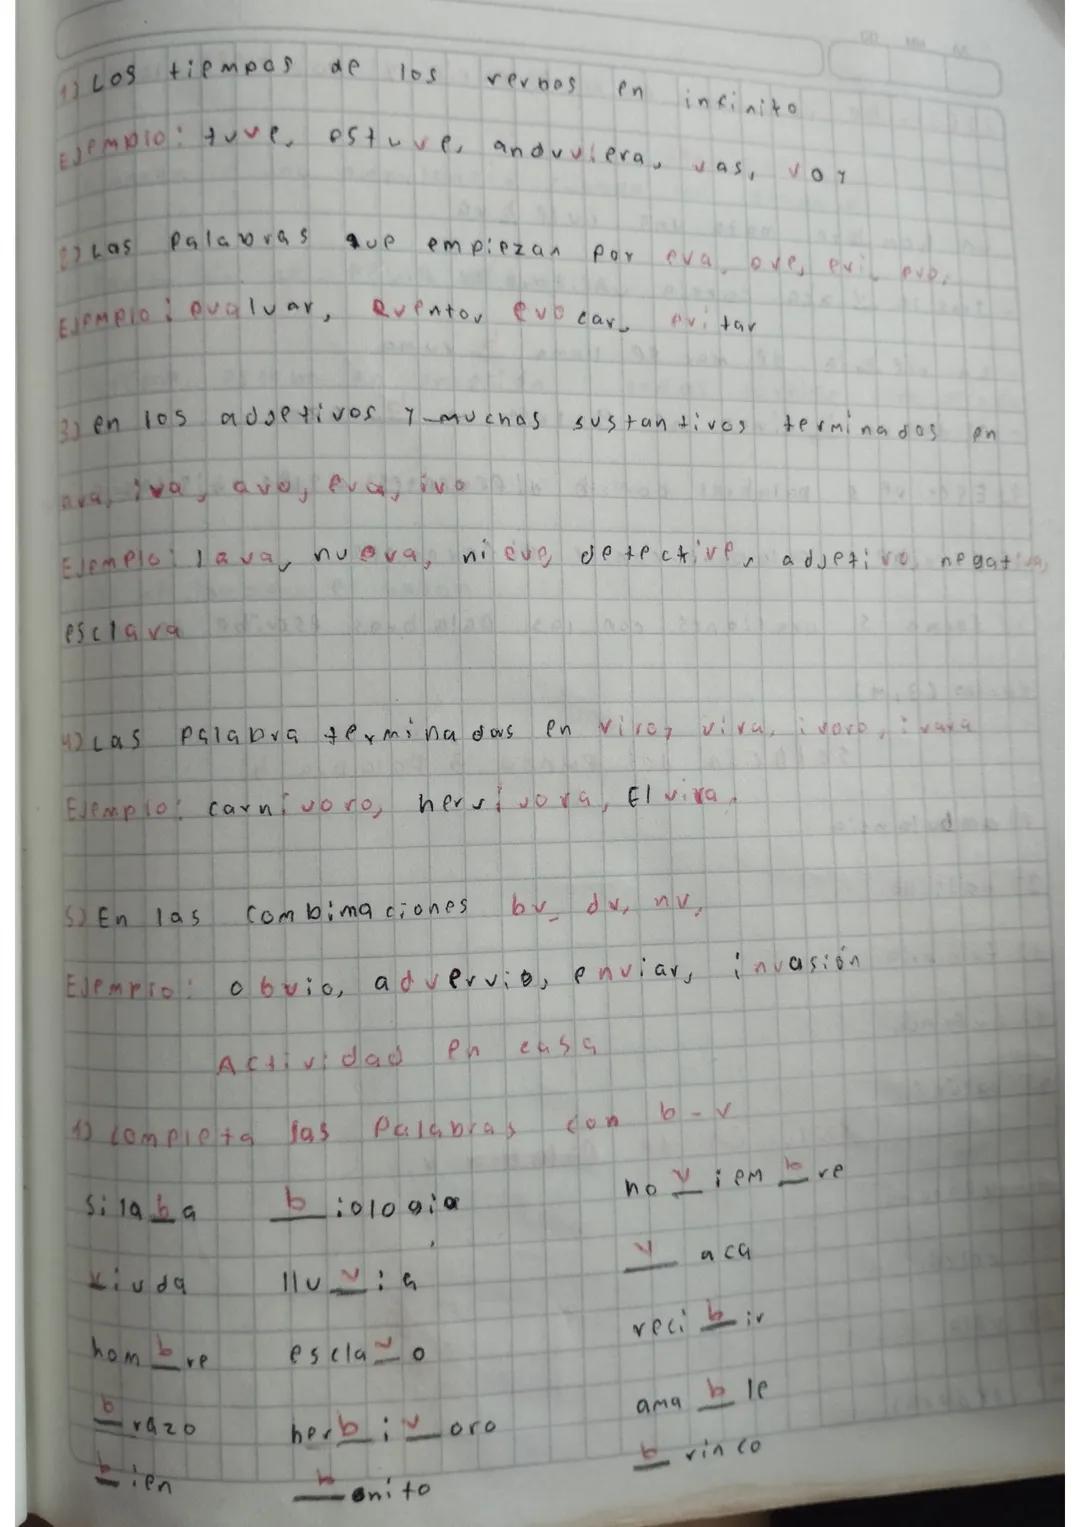 1) Los tiempos de los verbos en infinito
Ejemplo: tuve, estuve, anduviera, vas, voy
2) Las palabras que empiezan por eva, eve, evi, evo.
Ejemplo: evaluar, evento, evocar, evitar
3) en los adjetivos y muchos sustantivos terminados en
ava, iva, avo, eva, ivo
Ejemplo: lava, nueva, nieve, detective, adjetivo, negativa,
esclava
4) Las palabra terminadas en viro, vira, ivoro, ivara
Ejemplo: carnívoro, hervívora, Elvira.
5) En las combimaciones bv, dv, nv,
Ejemplo: obvio, advervio, enviar, invasión
Actividad en casa
1) completa las palabras con b-v
silaba biologia noviembre
viuda lluvia vaca
hombre esclavo recibir
brazo herbivoro amable
bien bonito brinco